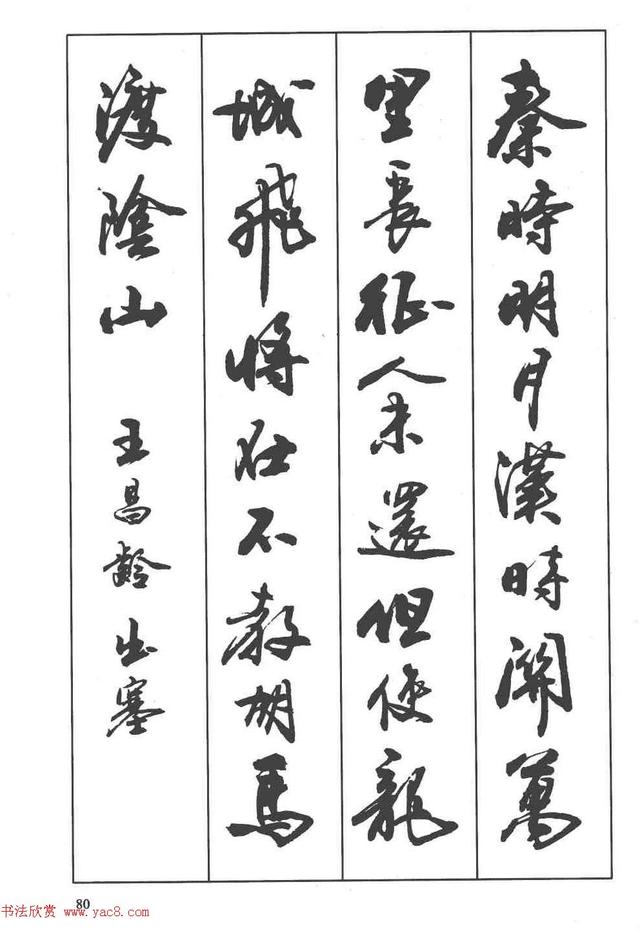 秦時明月漢時關萬
里長征人未還但使龍
城飛將在不教胡馬
渡陰山 王昌齡出塞
80
书法欣赏 www.yac8.com